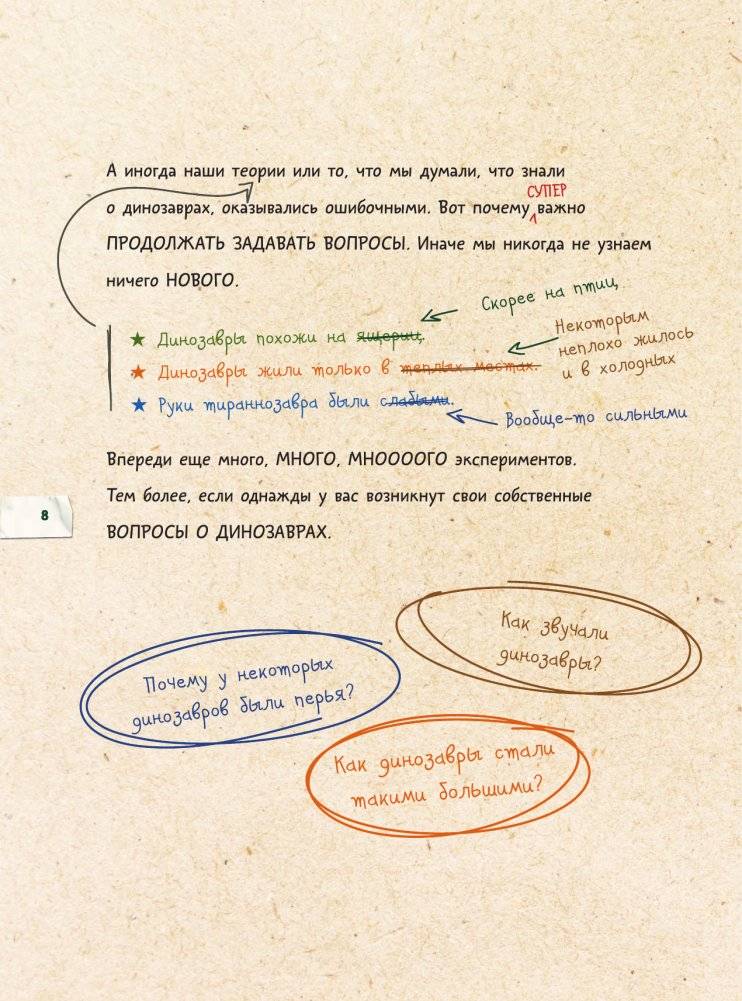 А иногда наши теории или то, что мы думали, что знали
СУПЕР
о динозаврах, оказывались ошибочными. Вот почему важно
ПРОДОЛЖАТЬ ЗАДАВАТЬ ВОПРОСЫ. Иначе мы никогда не узнаем
ничего НОВОГО.
Скорее на птиц
★ Динозавры похожи на ящериц.
Некоторым
неплохо жилось
и в холодных
★ Динозавры жили только в теплых местах.
★ Руки тираннозавра были слабыми.
Вообще-то сильными
Впереди еще много, МНОГО, МНООООГО экспериментов.
Тем более, если однажды у вас возникнут свои собственные
8
ВОПРОСЫ О ДИНОЗАВРАХ.
Как звучали
динозавры?
Почему у некоторых
динозавров были перья?
Как динозавры стали
такими большими?